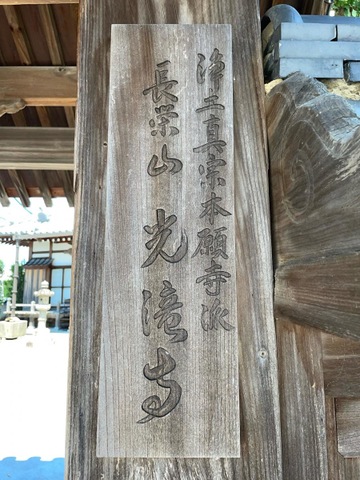 浄土真宗本願寺派
長栄山 光滝寺